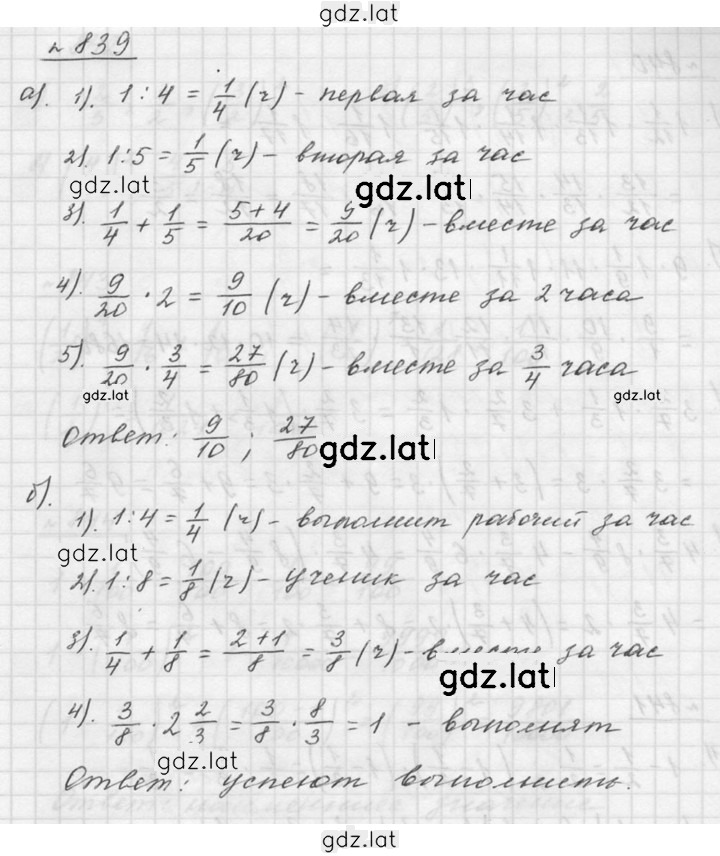 gdz.lat
№ 839
а). 1). 1 : 4 = 1/4 (ч) - первая за час
2). 1:5 = 1/5 (ч) - вторая за час
gdz.lat gdz.lat
3). 1/4 + 1/5 = (5+4)/20 = 9/20 (ч) - вместе за час
4). 9/20 · 2 = 9/10 (ч) - вместе за 2 часа
5). 9/20 · 3/4 = 27/80 (ч) - вместе за 3/4 часа
gdz.lat gdz.lat
Ответ: 9/10 ; 27/80
gdz.lat
б).
1). 1:4 = 1/4 (ч) - выполнит рабочий за час
gdz.lat
2). 1:8 = 1/8 (ч) - ученик за час
3). 1/4 + 1/8 = (2+1)/8 = 3/8 (ч) - вместе за час
gdz.lat
4). 3/8 · 2 2/3 = 3/8 · 8/3 = 1 - выполнят
gdz.lat
Ответ: успеют выполнить.
gdz.lat